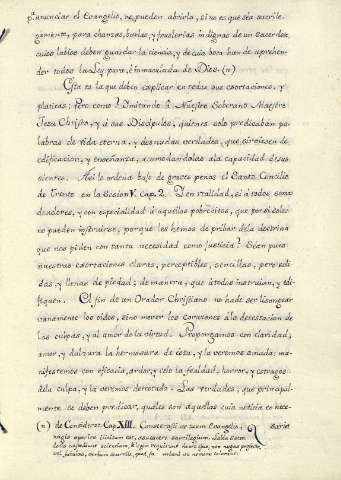 anunciar el Evangelio, no pueden abrirla, si no es que sea sacrile-
gamente, para chanzas, burlas, y fruslerias indignas de un Sacerdote,
cuios labios deben guardar la ciencia, y de cuia boca han de aprehen-
der todos la Ley pura, é inmaculada de Dios. (n)
Esta es la que deben explicar en todas sus exortaciones, y
platicas: Pero como? Imitando á Nuestro Soberano Maestro
Jesu Christo, y á sus Discipulos, quienes solo predicaban pa-
labras de vida eterna, y desnudas verdades, que sirviesen de
edificacion, y enseñanza, acomodandolas ála capacidad de sus
oientes. Asi lo ordena baxo de graves penas el Santo Concilio
de Trento en la Session V. Cap. 2. Y en realidad, si á todos somos
deudores, y con especialidad á aquellos pobrecitos, que por sí solos
no pueden instruirse, porque les hemos de pribar de la doctrina
que nos piden con tanta necesidad como justicia? Sean pues
nuestras exortaciones claras, perceptibles, sencillas,
das, y llenas de piedad; de manera, que á todos instruian, y edi-
fiquen. El fin de un Orador Christiano no ha de ser lisongear
vanamente los oidos, sino mover los corazones á la detestacion de
las culpas, y al amor de la virtud. Propongamos con claridad,
amor, y dulzura la hermosura de ésta, y la veremos amada: ma-
nifestemos con eficacia, ardor, y celo la fealdad, horror, y estragos
dela culpa, y la veremos detestada. Las verdades, que principal-
mente se deben predicar, quales son aquellas cuia noticia es nece-
(n) de Consideras. Cap. XIII. Consecrasti os tuum Evangelio; saria
talibus aperire illicitum est, assuescere sacrilegium. Labia Sacer-
dotis custodiunt scientiam, & legem requirunt de ore ejus, non nugas profecto,
vel fabulas, verbum scurrile, quod